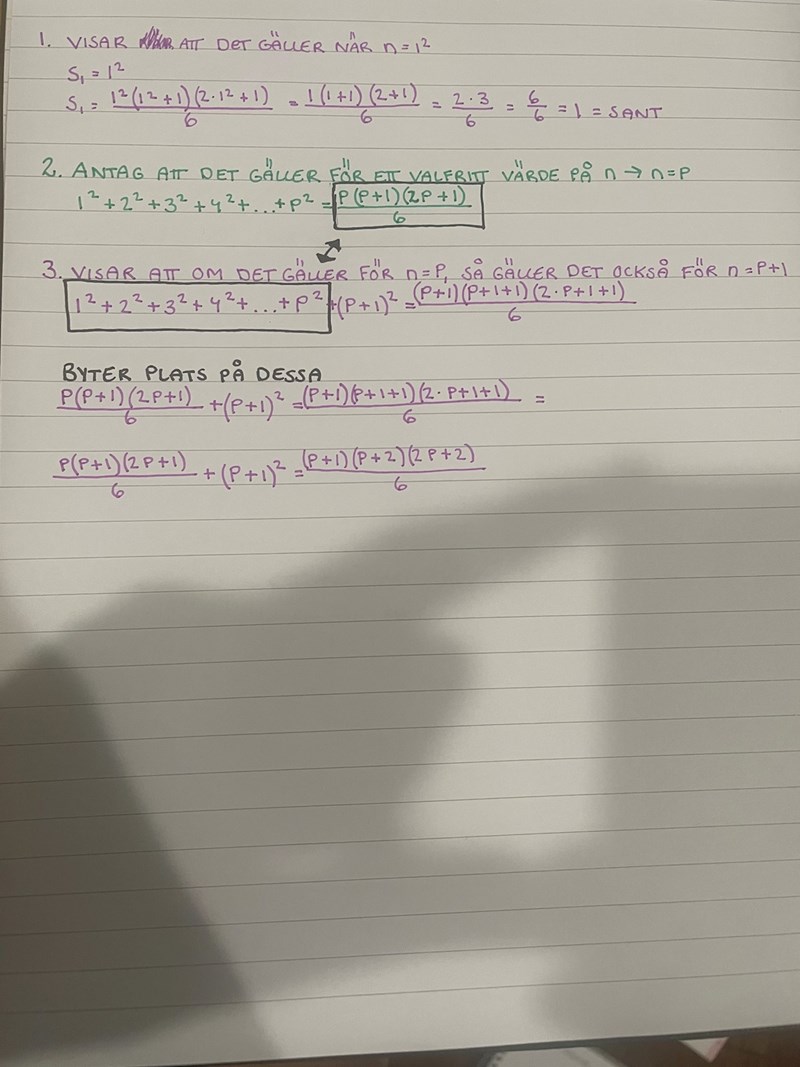 1. VISAR ATT DET GÄLLER NÄR n=1²
S₁ = 1²
S₁ = 1²(1²+1)(2·1²+1)/6 = 1(1+1)(2+1)/6 = 2·3/6 = 6/6 = 1 = SANT
2. ANTAG ATT DET GÄLLER FÖR ETT VALFRITT VÄRDE PÅ n → n=P
1²+2²+3²+4²+...+P² = P(P+1)(2P+1)/6
3. VISAR ATT OM DET GÄLLER FÖR n=P, SÅ GÄLLER DET OCKSÅ FÖR n=P+1
1²+2²+3²+4²+...+P²+(P+1)² = (P+1)(P+1+1)(2·P+1+1)/6
BYTER PLATS PÅ DESSA
P(P+1)(2P+1)/6 + (P+1)² = (P+1)(P+1+1)(2·P+1+1)/6 =
P(P+1)(2P+1)/6 + (P+1)² = (P+1)(P+2)(2P+2)/6